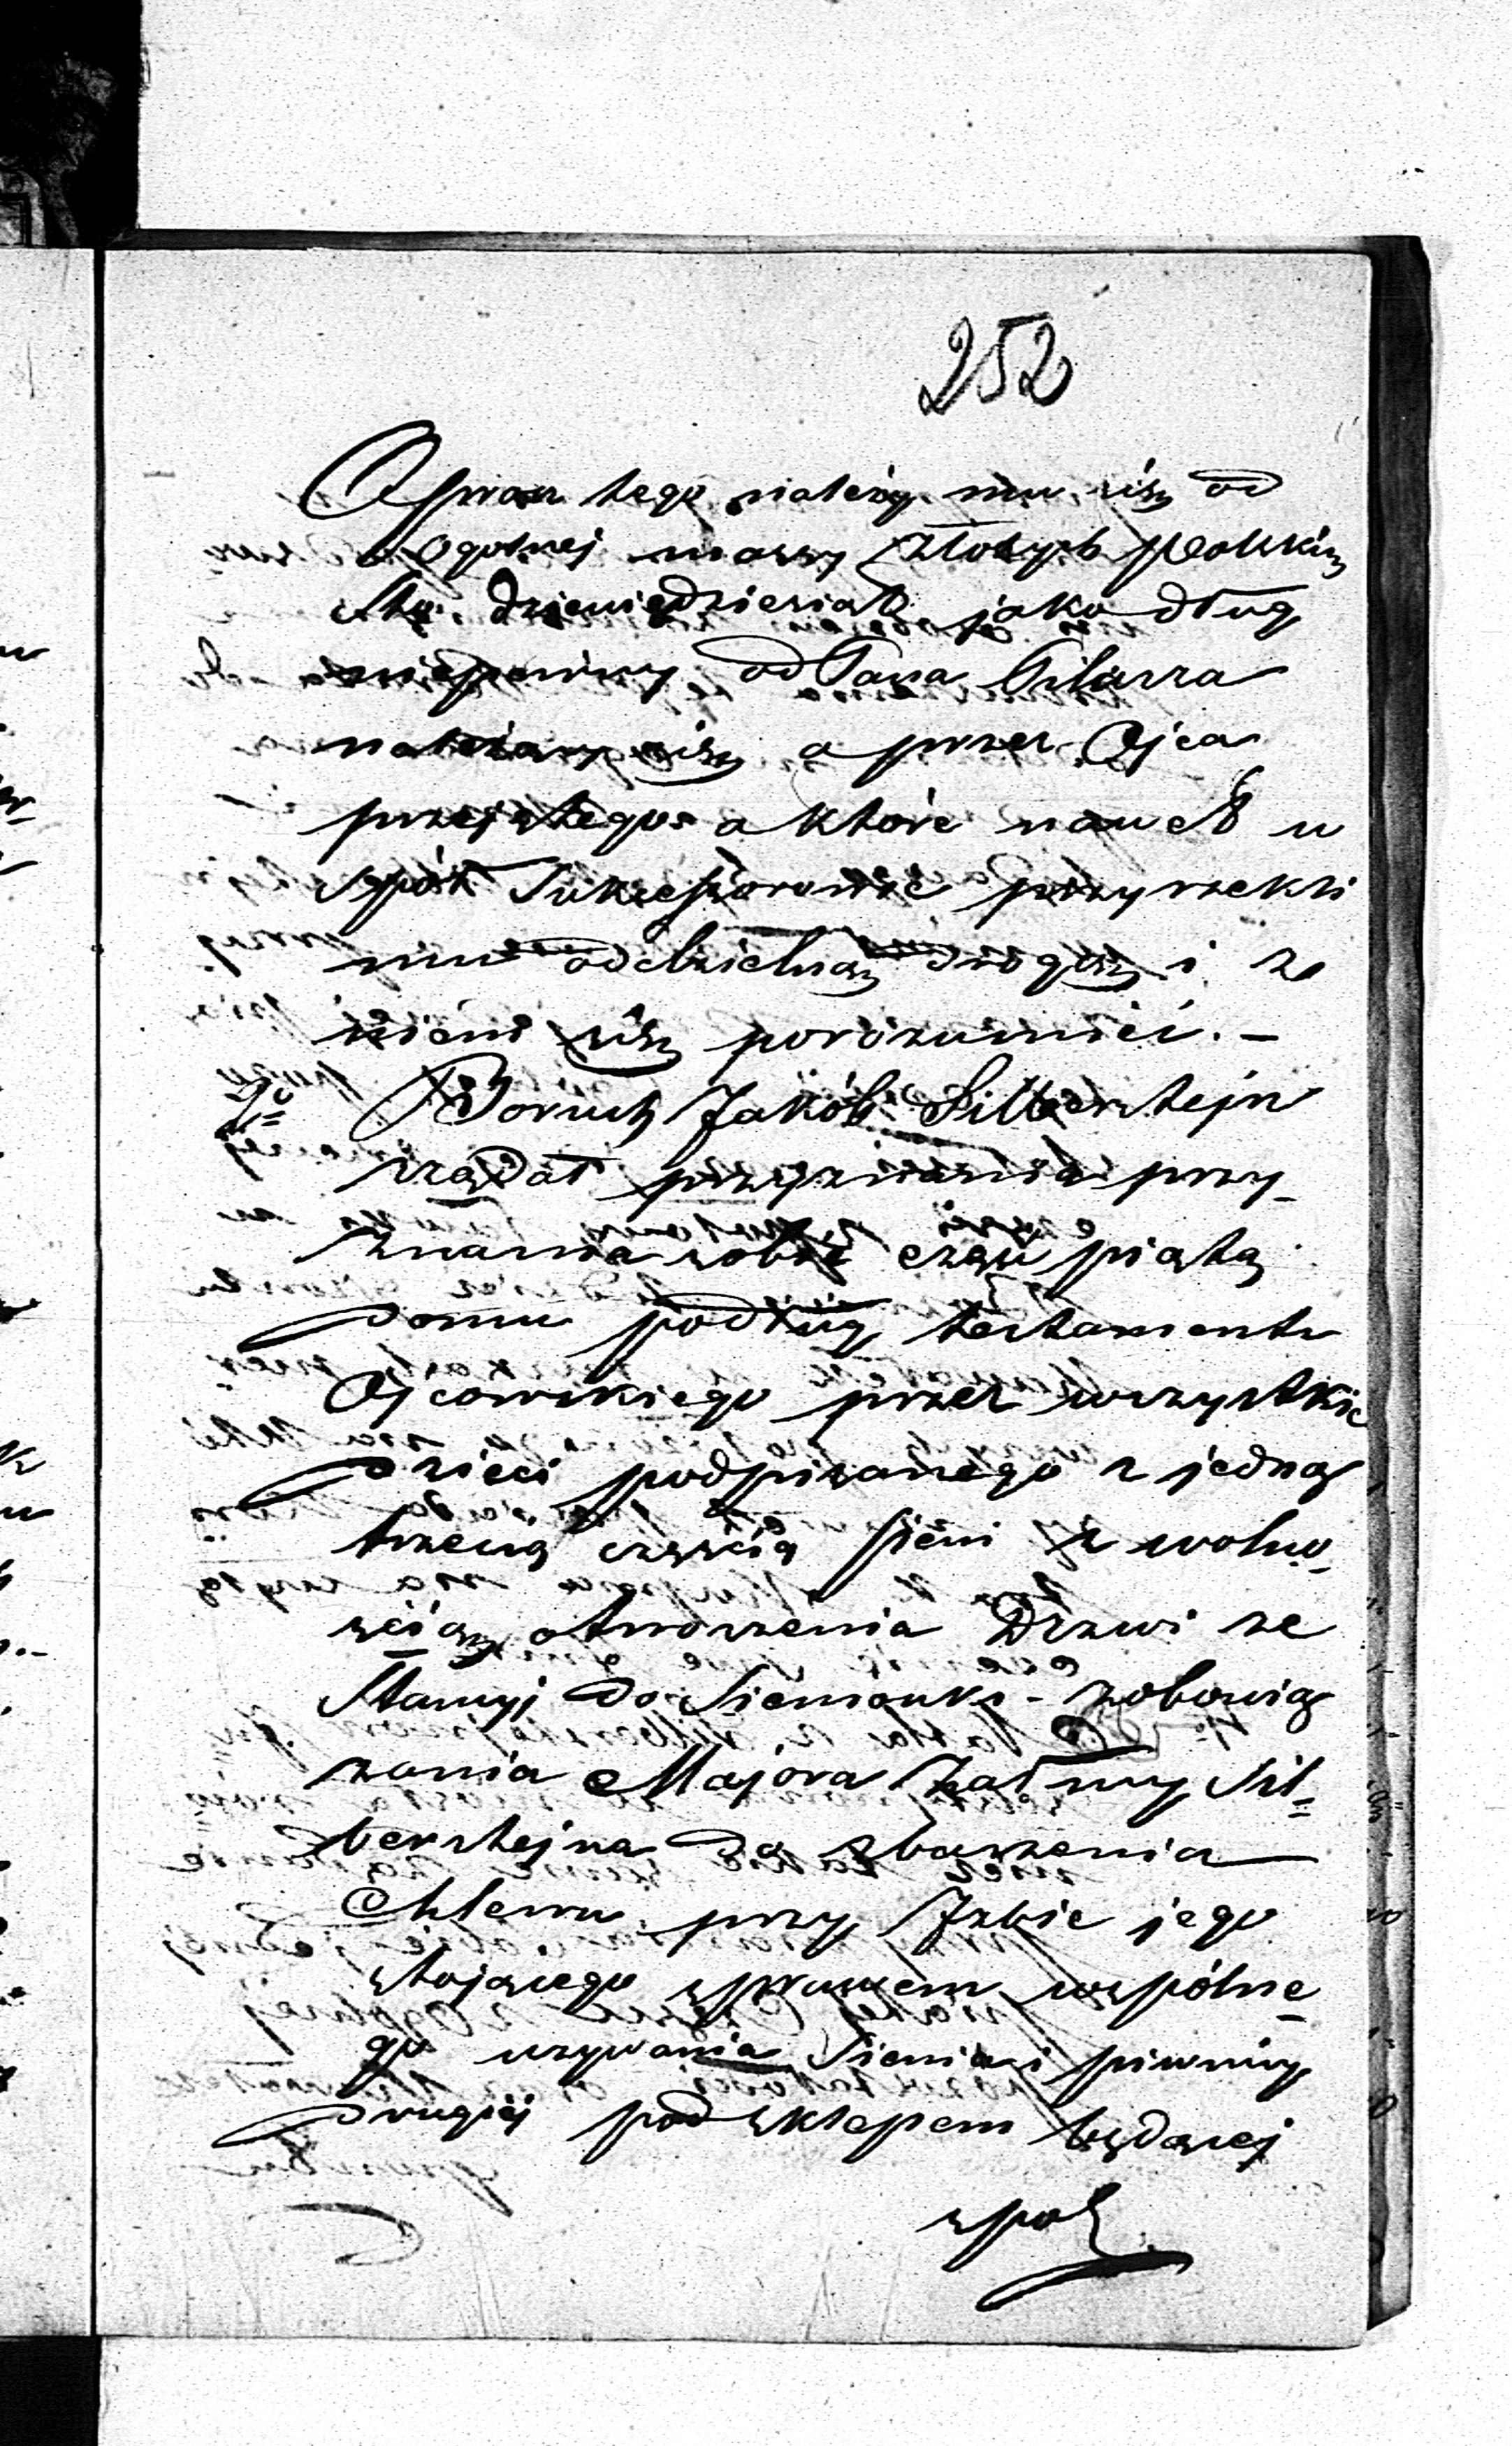 252
Oprocz tego należy mu się od
Ogolnej massy Złotych Polskich
Sto dziewiędziesiąt jako dług
niepewny od Pana Pilarza
należący się a przez Ojca
przejętego a które nawet w
spół Sukcessorowie przyrzekli
mu oddzielną drogą i z
niemi się porozumieć. –
2o Boruch Jakób Silberstejn
rządał przyznania przy-
znania sobie części piątą
Domu podług testamentu
Ojcowskiego przez wszystkie
Dzieci podpisanego z jedną
trzecią częścią sieni z wolno-
ścią otworzenia Drzwi ze
Stancyi do Sieniouki – zobowią
zania Majora Załmy Sil-
berstejna do zburzenia
Chlewu przy Izbie jego
stojącego z prawem wspólne-
go używania Sienia i piwnicy
drugiej pod sklepem będącej
spol